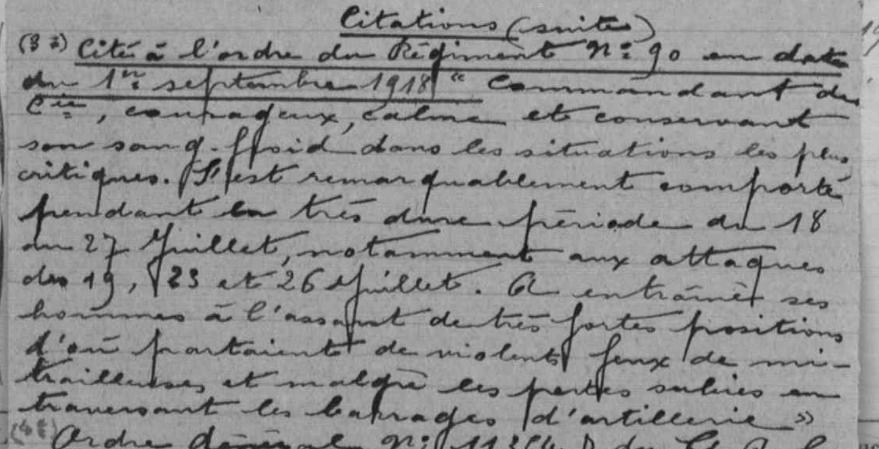 Citations (suite)
(3e) Cité à l'ordre du Régiment N° 90 en date
du 1er septembre 1918 " Commandant de
Cie, courageux, calme et conservant
son sang-froid dans les situations les plus
critiques. S'est remarquablement comporté
pendant la très dure période du 18
au 27 Juillet, notamment aux attaques
des 19, 23 et 26 Juillet. A entraîné ses
hommes à l'assaut de très fortes positions
d'où partaient de violents feux de mi-
trailleuses, et malgré les pertes subies en
traversant les barrages d'artillerie »
(4e) Ordre Général N°